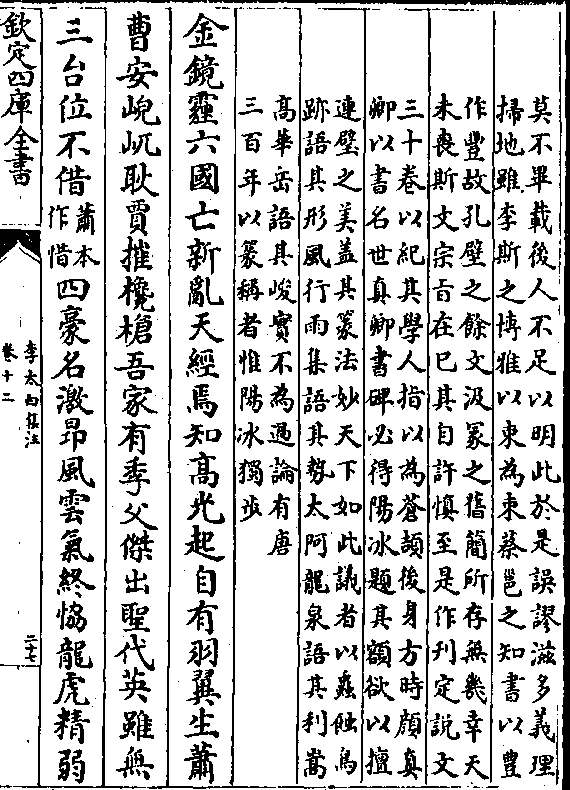 莫不畢載後人不足以明此於是誤謬滋多義理
掃地雖李斯之博雅以束為朿蔡邕之知書以豐
作豐故孔壁之餘文汲冡之舊簡所存無幾幸天
未喪斯文宗旨在已其自許慎至是作刋定説文
三十卷以紀其學人指以為蒼頡後身方時顔真
卿以書名世真卿書碑必得陽冰題其額欲以擅
連璧之美盖其篆法妙天下如此議者以蟲蝕鳥
跡語其形風行雨集語其勢太阿龍泉語其利嵩
髙華岳語其峻實不為過論有唐
三百年以篆稱者惟陽冰獨步
金鏡霾六國亡新亂天經焉知髙光起自有羽翼生蕭
曹安㟴屼耿賈摧欃槍吾家有季父傑出聖代英雖無
三台位不借蕭本作惜四豪名激昂風雲氣終恊龍虎精弱
欽定四庫全書
李太白集注
卷十二
二十七